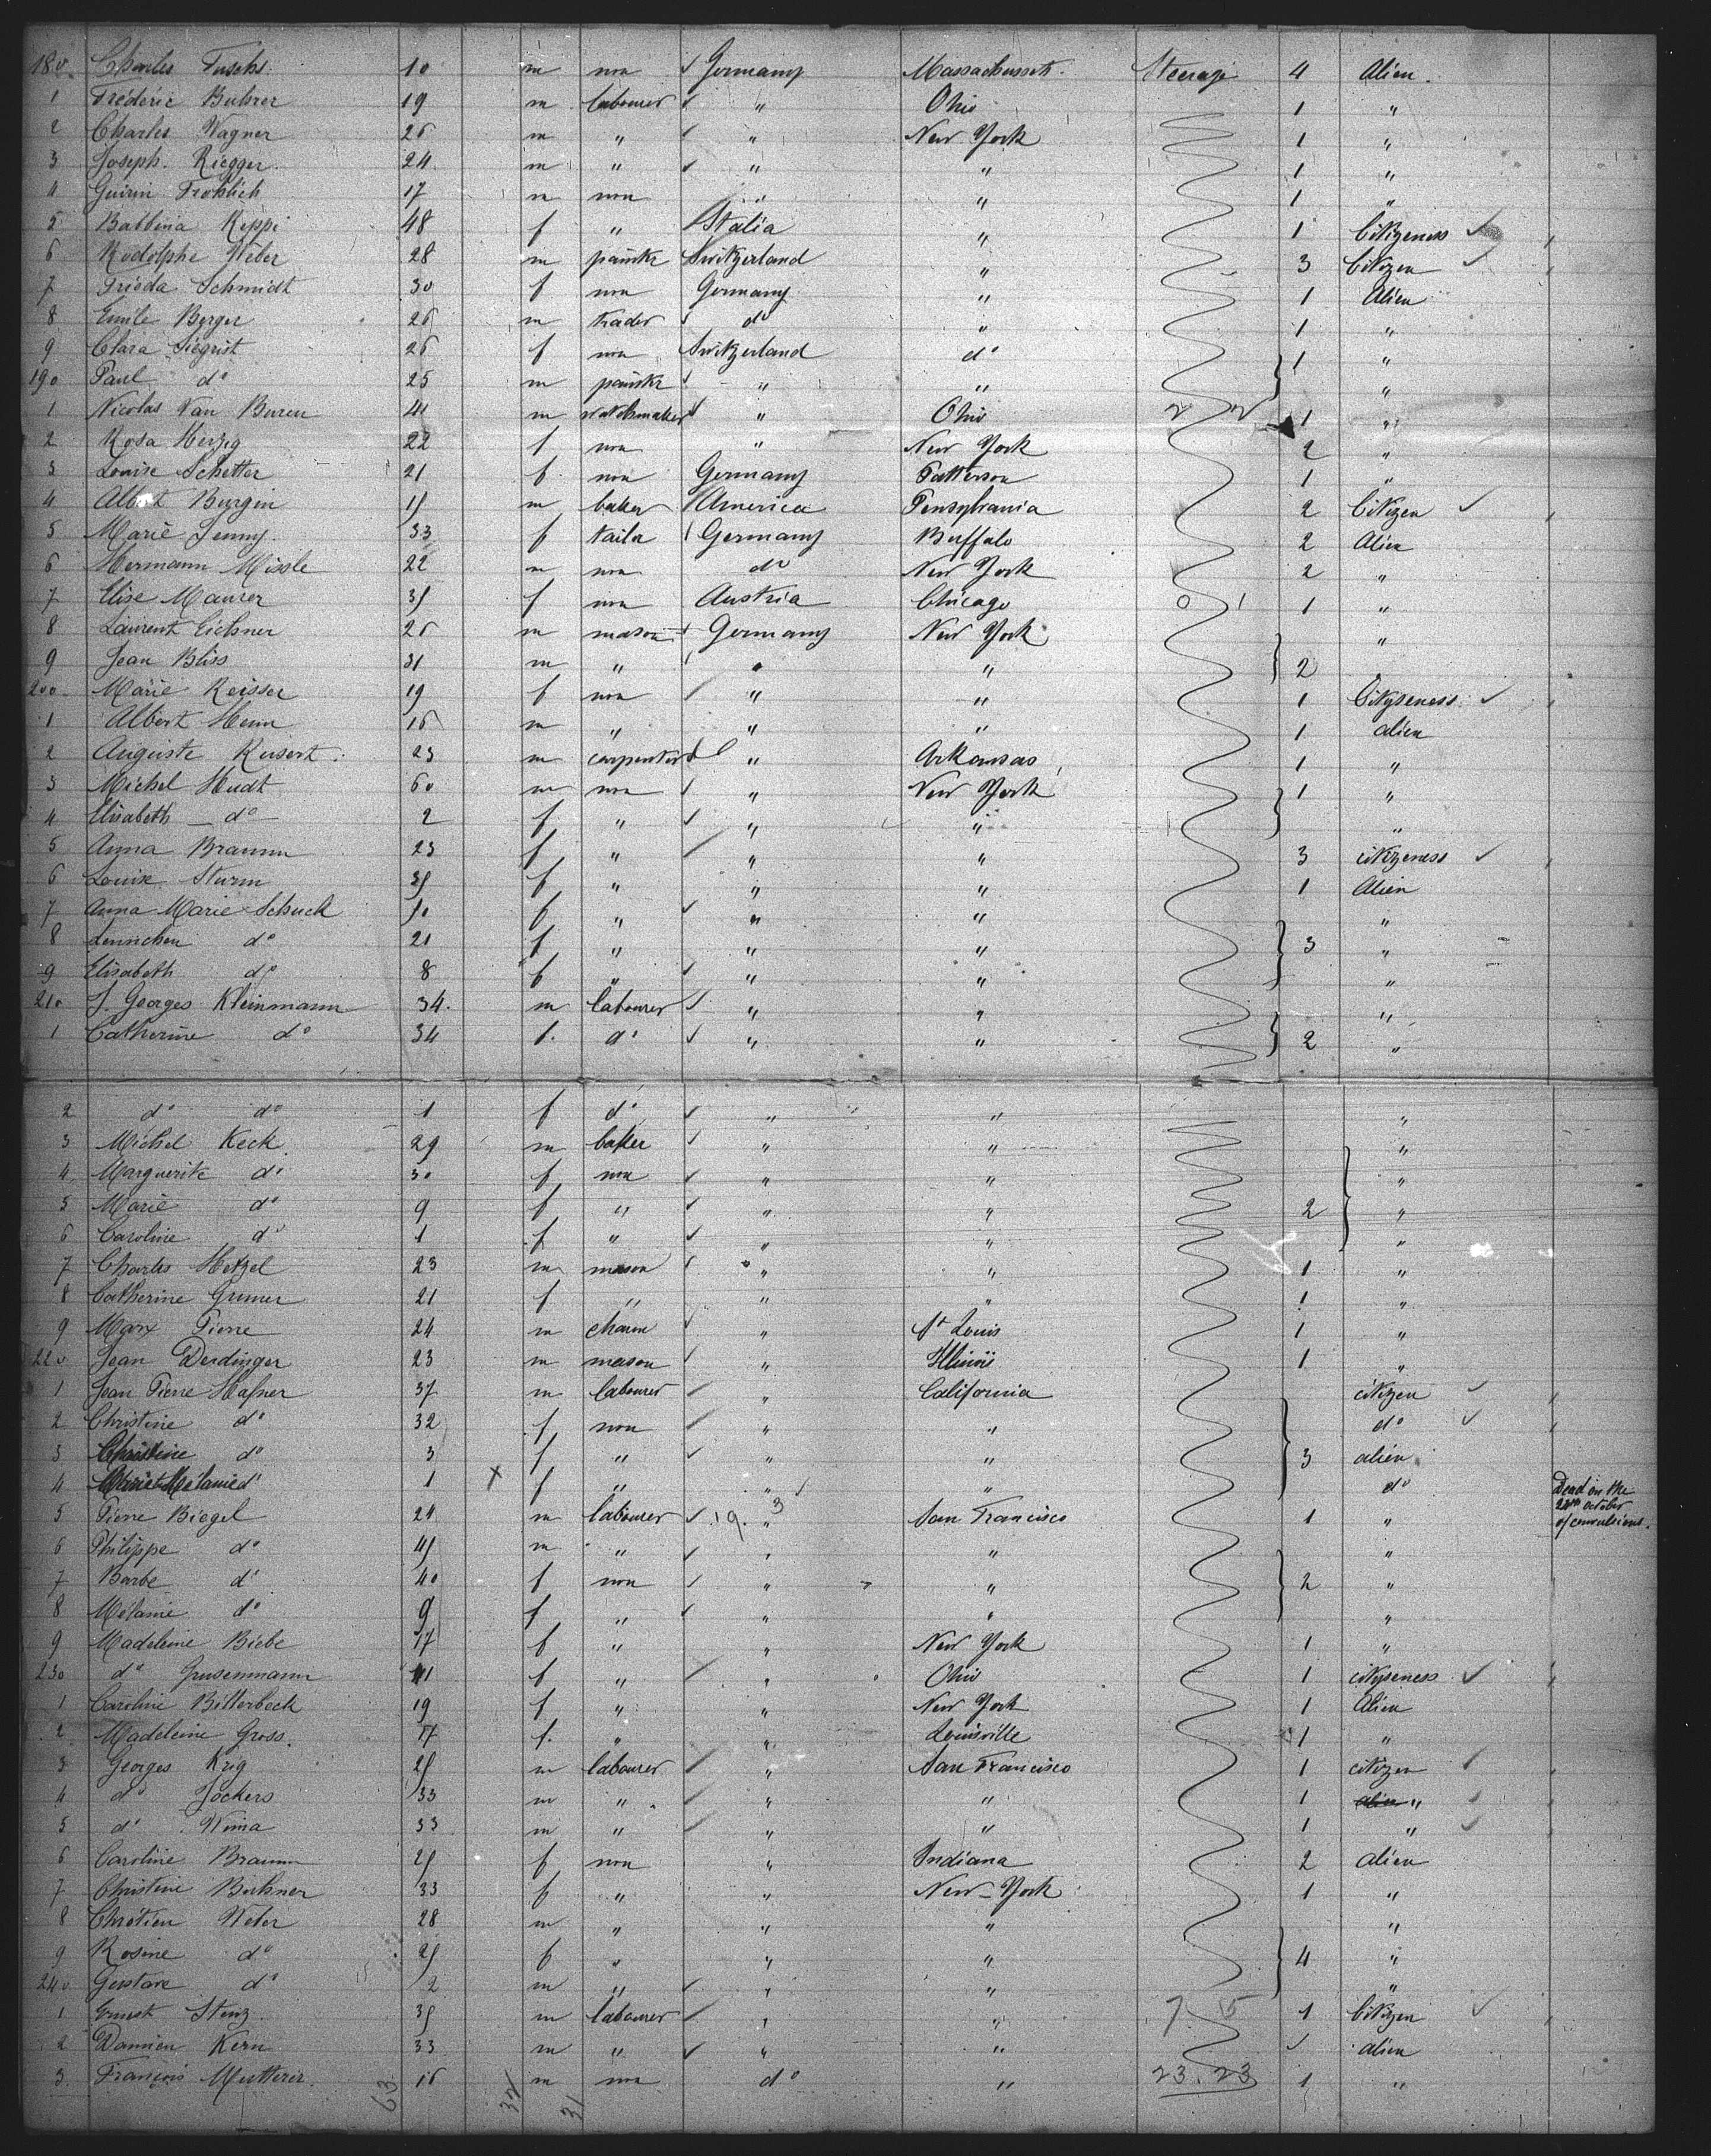 180 Charles Fuschs 10 m non ✓ Germany Massachussets. Steerage 4 Alien.
1 Fréderic Buhrer 19 m labourer ✓ " Ohio 1 "
2 Charles Wagner 26 m " ✓ " New York 1 "
3 Joseph. Riegger 24 m " ✓ " " 1 "
4 Guirin Frohlich 17 m non " " 1 "
5 Babbina Keppi 48 f " Italia " 1 Citizeness ✓
6 Rodolphe Weber 28 m paintr Switzerland " 3 Citizen ✓
7 Frieda Schmidt 30 f non Germany " 1 Alien
8 Emile Berger 26 m trader ✓ do " 1 "
9 Clara Siegrist 26 f non Switzerland do 1 "
190 Paul do 25 m paintr ✓ " " "
1 Nicolas Van Buren 41 m watchmaker ✓ " Ohio 1 "
2 Rosa Herzig 22 f non " New York 2 "
3 Louise Schetter 21 f non Germany Patterson 1 "
4 Albert Burgin m baker America Pensylvania 2 Citizen ✓
5 Marie Jenny 33 f tailor Germany Buffalo 2 Alien
6 Hermann Missle 22 m non do New York 2 "
7 Elise Maurer f non Austria Chicago 1 "
8 Laurent Eichner 26 m mason Germany New York "
9 Jean Bliss 31 m " " " 2
200 Marie Reisser 19 f non ✓ " " 1 Citizeness ✓
1 Albert Henn 16 m " " " 1 alien
2 Auguste Rusert 23 m carpenter " Arkansas 1 "
3 Michel Hudt 60 m non ✓ " New York 1 "
4 Elisabeth do 2 f " ✓ " " "
5 Anna Braunn 23 f " ✓ " " 3 citizeness ✓
6 Louise Sturm f " " " 1 Alien
7 Anna Marie Schuck f " ✓ " " "
8 Lennchen do 21 f " " " 3 "
9 Elisabeth do 8 f " ✓ " " "
210 J. Georges Kleinmann 34. m labourer ✓ " " "
1 Catherine do 34 f. do ✓ " " 2 "
2 do do 1 f do ✓ " " "
3 Michel Keck 29 m baker ✓ " " "
4 Marguerite do 30 f non ✓ " " "
5 Marie do 9 f " ✓ " " 2 "
6 Caroline do 1 f " ✓ " " "
7 Charles Hetzel 23 m mason ✓ " " 1 "
8 Catherine Grumer 21 f " " " 1 "
9 Marx Pierre 24 m ✓ " St Louis 1 "
220 Jean Derdinger 23 m mason ✓ " Illinois 1 "
1 Jean Pierre Hafner 37 m labourer ✓ " California citizen ✓
2 Christine do 32 f non ✓ " " do ✓
3 Christine do 3 f " ✓ " " 3 alien
4 Mélanie do 1 X f " " ✓ " do Dead on the
5 Pierre Biegel 24 m labourer ✓ 19. " 3 San Francisco 1 " october
of convulsions.
6 Philippe do m " ✓ " " "
7 Barbe do 40 f non ✓ " " 2 "
8 Mélanie do 9 f " ✓ " " "
9 Madeleine Biebe 17 f " " New York 1 "
230 do Grusenmann f " ✓ " Ohio 1 citizeness ✓
1 Caroline Bitterbeck 19 f " " New York 1 Alien
2 Madeleine Gross. 17 f. " " Louisville 1 "
3 Georges Krig m labourer ✓ " San Francisco 1 citizen ✓
4 do Jockers 33 m " ✓ " " 1 alien " ✓
5 do Wima 33 m " ✓ " " 1 " ✓
6 Caroline Braunn f non " Indiana 2 alien
7 Christine Buchner 33 f " " New-York 1 "
8 Chrétien Weber 28 m " " " "
9 Rosine do f " " " 4 "
240 Gustave do 2 m " ✓ " " "
1 Ernest Stenz m labourer ✓ " " 7 15 1 Citizen ✓
2 Damien Kern 33 m " ✓ " " ✓ alien
3 François Mutterer 16 m non do " 23. 23 1 "
63 32 31